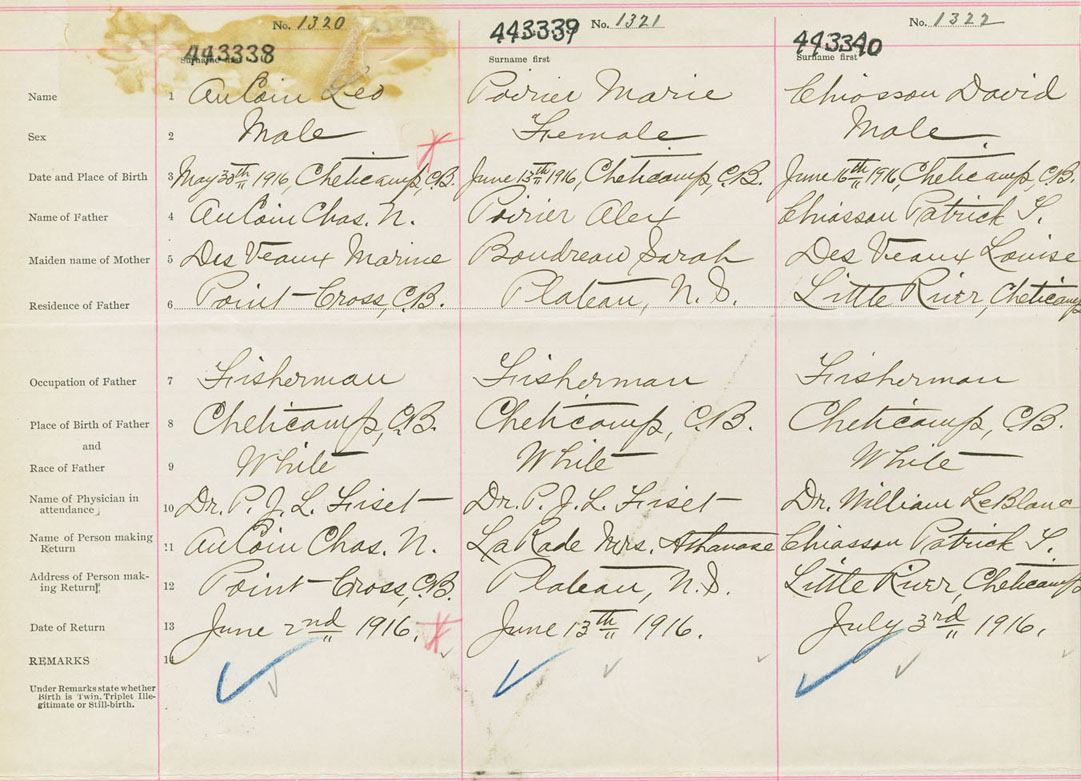 No. 1320 No. 1321 No. 1322
443338 443339 443340
Surname first Surname first Surname first
Name 1 AuCoin Leo Poirier Marie Chiasson David
Sex 2 Male Female Male
Date and Place of Birth 3 May 30th 1916, Cheticamp, C.B. June 13th 1916, Cheticamp, C.B. June 16th 1916, Cheticamp, C.B.
Name of Father 4 AuCoin Chas. N. Poirier Alex Chiasson Patrick S.
Maiden name of Mother 5 Des Veaux Marine Boudreau Sarah Des Veaux Louise
Residence of Father 6 Point-Cross, C.B. Plateau, N.S. Little River, Cheticamp
Occupation of Father 7 Fisherman Fisherman Fisherman
Place of Birth of Father 8 Cheticamp, C.B. Cheticamp, C.B. Cheticamp, C.B.
and
Race of Father 9 White White White
Name of Physician in
attendance 10 Dr. P. J. L. Fiset Dr. P. J. L. Fiset Dr. William LeBlanc
Name of Person making
Return 11 AuCoin Chas. N. LaRade Mrs. Athanase Chiasson Patrick S.
Address of Person mak-
ing Return 12 Point-Cross, C.B. Plateau, N.S. Little River, Cheticamp
Date of Return 13 June 2nd 1916. June 13th 1916. July 3rd 1916.
REMARKS 14
Under Remarks state whether
Birth is Twin, Triplet Ille-
gitimate or Still-birth.